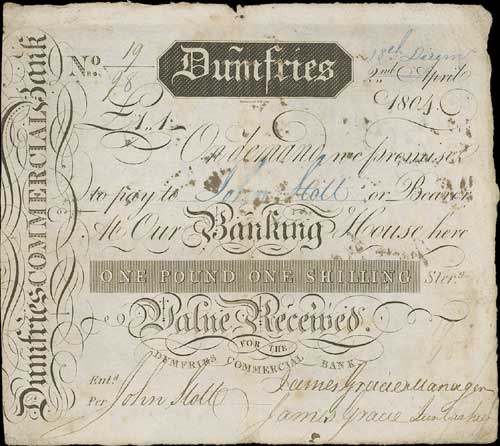 Dumfries COMMERCIAL Bank
No 19/98
Dumfries
18th
2nd April
1804
£1..1
On demand we promise
to pay to John Stott or Bearer
At Our Banking House here
ONE POUND ONE SHILLING Sterg
Value Received.
FOR THE
DUMFRIES COMMERCIAL BANK
Entd
Per John Stott
James Gracie Manager
James Gracie